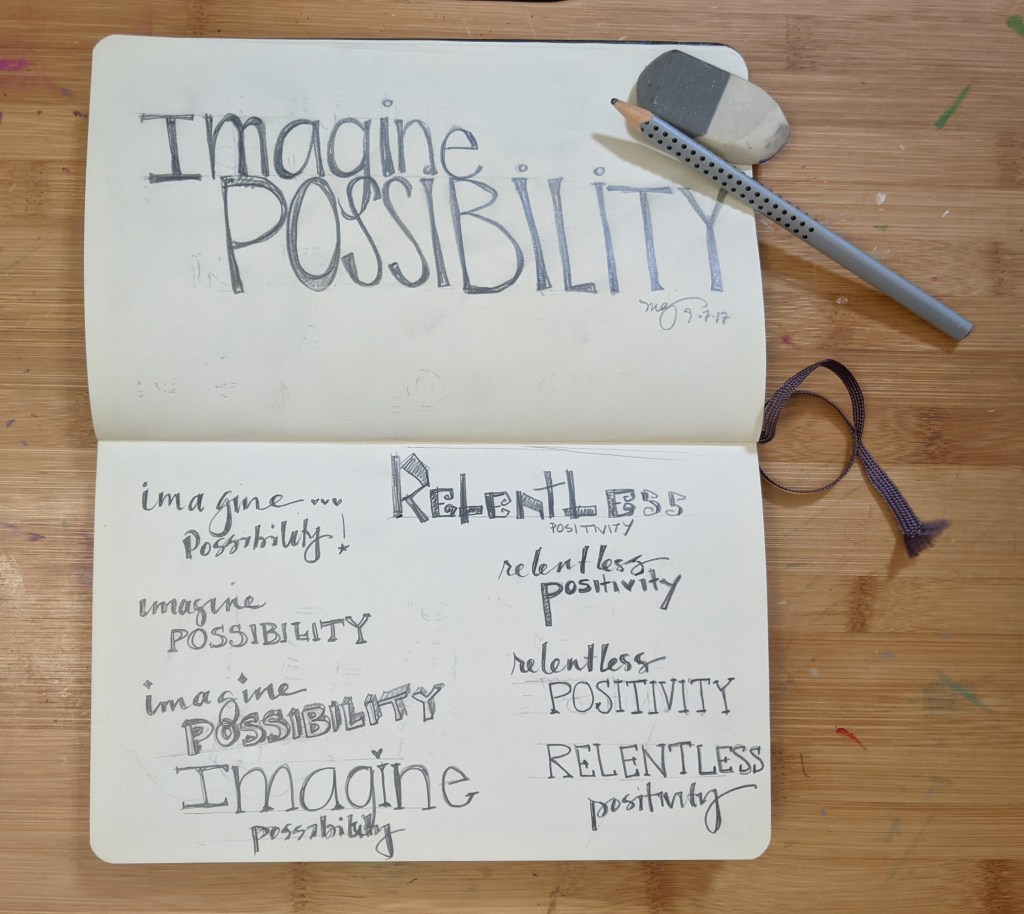 Imagine
POSSIBILITY
9.7.17
imagine ...
Possibility!
imagine
POSSIBILITY
imagine
POSSIBILITY
Imagine
possibility
RELENTLESS
POSITIVITY
relentless
positivity
relentless
POSITIVITY
RELENTLESS
positivity